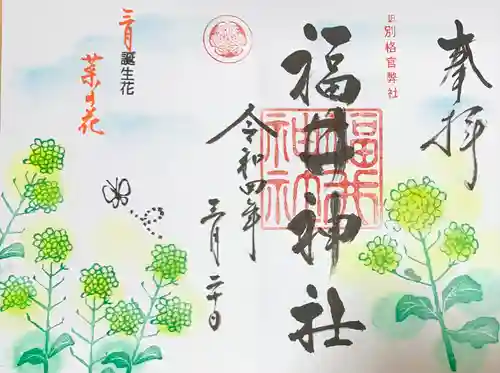 奉拝
旧別格官幣社
福井神社
福井神社
令和四年
三月二十日
三月誕生花
菜の花